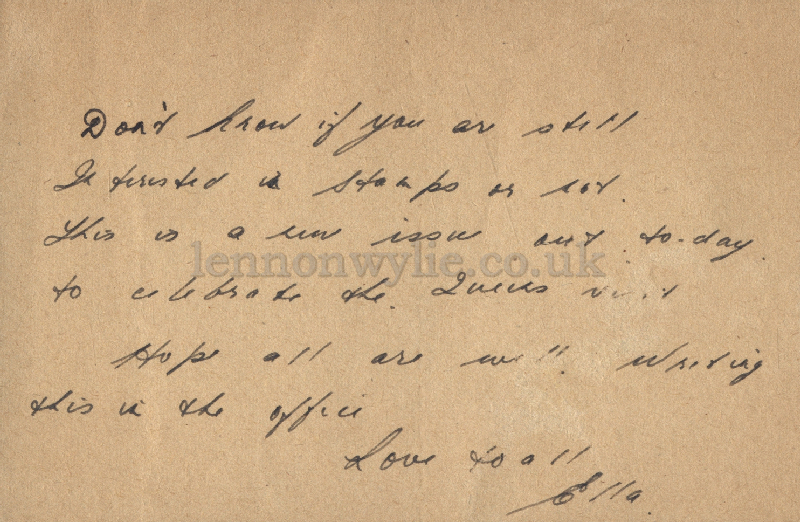 Don't know if you are still
Interested in stamps or not.
This is a new issue out to-day
lennonwylie.co.uk
to celebrate the Queens visit
Hope all are well. Writing
this in the office
Love to all
Ella.